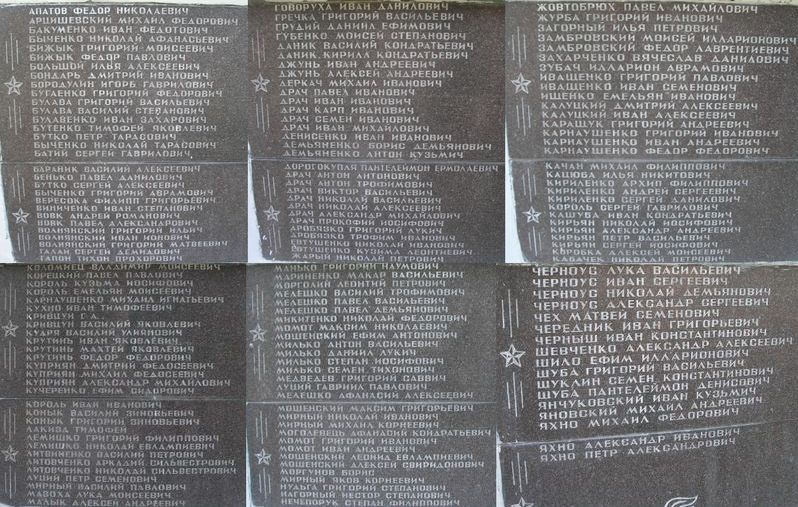 АПАТОВ ФЕДОР НИКОЛАЕВИЧ
АРЦИШЕВСКИЙ МИХАИЛ ФЕДОРОВИЧ
БАКУМЕНКО ИВАН ФЕДОТОВИЧ
БЫЧЕНКО НИКОЛАЙ АФАНАСЬЕВИЧ
БИЖЫК ГРИГОРИЙ МОИСЕЕВИЧ
БИЖЫК ФЕДОР ПАВЛОВИЧ
БОЛЬШОЙ ИЛЬЯ АЛЕКСЕЕВИЧ
БОНДАРЬ ДМИТРИЙ ИВАНОВИЧ
БОРОДУЛИН ИГОРЬ ГАВРИЛОВИЧ
БУГАЕНКО ГРИГОРИЙ ФЕДОРОВИЧ
БУЛАВА ГРИГОРИЙ ВАСИЛЬЕВИЧ
БУЛАВА ВАСИЛИЙ СТЕПАНОВИЧ
БУЛАВЕНКО ИВАН ЗАХАРОВИЧ
БУТЕНКО ТИМОФЕЙ ЯКОВЛЕВИЧ
БУТКО ПЕТР ТАРАСОВИЧ
БЫЧЕНКО НИКОЛАЙ ТАРАСОВИЧ
БАТИЙ СЕРГЕЙ ГАВРИЛОВИЧ
БАРАНИК ВАСИЛИЙ АЛЕКСЕЕВИЧ
БЕНЬКО ПАВЕЛ ДАНИЛОВИЧ
БУТКО СЕРГЕЙ АЛЕКСЕЕВИЧ
БЫЧЕНКО ГРИГОРИЙ АВРАМОВИЧ
ВЕРЕСОКА ФИЛИПП ГРИГОРЬЕВИЧ
ВИНИЧЕНКО ИВАН СТЕПАНОВИЧ
ВОВК АНДРЕЙ РОМАНОВИЧ
ВОВК ПАВЕЛ АЛЕКСАНДРОВИЧ
ВОЛИЯНСКИЙ ГРИГОРИЙ ИЛЬИЧ
ВОЛИЯНСКИЙ ИВАН ИВАНОВИЧ
ВОЛИЯНСКИЙ ГРИГОРИЙ МАТВЕЕВИЧ
ГАЛАН СЕРГЕЙ ДЕМИДОВИЧ
ГАПОН ТИХОН ПРОХОРОВИЧ
ГОВОРУХА ИВАН ДАНИЛОВИЧ
ГРЕЧКА ГРИГОРИЙ ВАСИЛЬЕВИЧ
ГРУДИЙ ДАНИИЛ ЕФИМОВИЧ
ГУБЕНКО МОИСЕЙ СТЕПАНОВИЧ
ДАНИК ВАСИЛИЙ КОНДРАТЬЕВИЧ
ДАНИК КИРИЛЛ КОНДРАТЬЕВИЧ
ДЖУНЬ ИВАН АНДРЕЕВИЧ
ДЖУНЬ АЛЕКСЕЙ АНДРЕЕВИЧ
ДЕРКАЧ МИХАИЛ ИВАНОВИЧ
ДРАЧ ПАВЕЛ ИВАНОВИЧ
ДРАЧ ИВАН ИВАНОВИЧ
ДРАЧ КАРП ИВАНОВИЧ
ДРАЧ СЕМЕН ИВАНОВИЧ
ДРАЧ ИВАН МИХАЙЛОВИЧ
ДЕНИСЕНКО ИВАН ИВАНОВИЧ
ДЕМЬЯНЕНКО БОРИС ДЕМЬЯНОВИЧ
ДЕМЬЯНЕНКО АНТОН КУЗЬМИЧ
ДОРОГОКУПЛЯ ПАНТЕЛЕЙМОН ЕРМОЛАЕВИЧ
ДРАЧ АНТОН
ДРАЧ АНТОН ТРОФИМОВИЧ
ДРАЧ ВИКТОР ВАСИЛЬЕВИЧ
ДРАЧ НИКОЛАЙ ВАСИЛЬЕВИЧ
ДРАЧ НИКОЛАЙ АЛЕКСЕЕВИЧ
ДРАЧ АЛЕКСАНДР МИХАЙЛОВИЧ
ДРАЧ ПРОКОФИЙ ИОСИФОВИЧ
ДРОБЯЗКО ГРИГОРИЙ ЛУКИЧ
ДРОБЯЗКО ТРОФИМ ИВАНОВИЧ
ЕВТУШЕНКО НИКОЛАЙ ИВАНОВИЧ
ЕВТУШЕНКО КУЗЬМА ЛЕОНТИЕВИЧ
ЖАРЫЙ НИКОЛАЙ ПЕТРОВИЧ
ЖОВТОБРЮХ ПАВЕЛ МИХАЙЛОВИЧ
ЖУРБА ГРИГОРИЙ ИВАНОВИЧ
ЗАГОРНЫЙ ИЛЬЯ ПЕТРОВИЧ
ЗАМБРОВСКИЙ МОИСЕЙ ИЛЛАРИОНОВИЧ
ЗАМБРОВСКИЙ ФЕДОР ЛАВРЕНТИЕВИЧ
ЗАХАРЧЕНКО ВЯЧЕСЛАВ ДАНИЛОВИЧ
ЗУБАЧ ИЛЛАРИОН АВРАМОВИЧ
ИВАЩЕНКО ГРИГОРИЙ ПАВЛОВИЧ
ИВАЩЕНКО ИВАН СЕМЕНОВИЧ
ИЩЕНКО ЕМЕЛЬЯН ИВАНОВИЧ
КАЛУЦКИЙ ДМИТРИЙ АЛЕКСЕЕВИЧ
КАЛУЦКИЙ ИВАН АЛЕКСЕЕВИЧ
КАРАЩУК ГРИГОРИЙ АНДРЕЕВИЧ
КАРНАУШЕНКО ГРИГОРИЙ ИВАНОВИЧ
КАРНАУШЕНКО ИВАН АНДРЕЕВИЧ
КАРНАУШЕНКО ФЕДОР ФЕДОРОВИЧ
КАЧАН МИХАИЛ ФИЛИППОВИЧ
КАЦЮБА ИЛЬЯ НИКИТОВИЧ
КИРИЛЕНКО АРХИП ФИЛИППОВИЧ
КИРИЛЕНКО АНДРЕЙ СЕРГЕЕВИЧ
КИРИЛЕНКО СЕРГЕЙ ДАНИЛОВИЧ
КОРОЛЬ СЕРГЕЙ ГАВРИЛОВИЧ
КАШУБА ИВАН КОНДРАТЬЕВИЧ
КИРЬЯН НИКОЛАЙ ИОСИФОВИЧ
КИРЬЯН АЛЕКСАНДР АНДРЕЕВИЧ
КИРЬЯН ПЕТР ВАСИЛЬЕВИЧ
КИРЬЯН СЕРГЕЙ ИОСИФОВИЧ
КОРОБКА АЛЕКСЕЙ МОИСЕЕВИЧ
КАБАЧЕК НИКОЛАЙ ПЕТРОВИЧ
КОЛОМИЕЦ ВЛАДИМИР МОИСЕЕВИЧ
КОРЕЦКИЙ ПАВЕЛ ПАВЛОВИЧ
КОРОЛЬ КУЗЬМА ИОСИФОВИЧ
КОРОЛЬ ЕМЕЛЬЯН МОИСЕЕВИЧ
КАРНАУШЕНКО МИХАИЛ ИГНАТЬЕВИЧ
КУХНО ИВАН ТИМОФЕЕВИЧ
КРИВЦУН Г.А.
КРИВЦУН ВАСИЛИЙ ЯКОВЛЕВИЧ
КУДРЯ ВАСИЛИЙ УЛИЯНОВИЧ
КРУТИНЬ ИВАН ЯКОВЛЕВИЧ
КРУТИНЬ МАХТЕЙ ЯКОВЛЕВИЧ
КРУТИНЬ ФЕДОР ФЕДОРОВИЧ
КУПРИЯН ДМИТРИЙ ФЕДОСЕЕВИЧ
КУПРИЯН МИХАИЛ ФЕДОСЕЕВИЧ
КУПРИЯН АЛЕКСАНДР МИХАЙЛОВИЧ
КУЧЕРЕНКО ЕФИМ СИДОРОВИЧ
КОРОЛЬ ИВАН ИВАНОВИЧ
КОНЫК ВАСИЛИЙ ЗИНОВЬЕВИЧ
КОНЫК ГРИГОРИЙ ЗИНОВЬЕВИЧ
ЛАКИЗА ТИМОФЕЙ
ЛЕМИШКО ГРИГОРИЙ ФИЛИППОВИЧ
ЛЕМИШКО НИКОЛАЙ ЕВЛАМПИЕВИЧ
ЛИТВИНЕНКО ВАСИЛИЙ ПЕТРОВИЧ
ЛИТОВЧЕНКО АРКАДИЙ СИЛЬВЕСТРОВИЧ
ЛИТОВЧЕНКО НИКОЛАЙ СИЛЬВЕСТРОВИЧ
ЛУЦИЙ ПЕТР СЕМЕНОВИЧ
МИРНЫЙ ВАСИЛИЙ ПАВЛОВИЧ
МАВОХА ЛУКА МОИСЕЕВИЧ
МАЛЫК АЛЕКСЕЙ АНДРЕЕВИЧ
МАНЬКО ГРИГОРИЙ НАУМОВИЧ
МАРИНЕНКО МАКАР ВАСИЛЬЕВИЧ
МОРГОЛИН ЛЕОНТИЙ ПЕТРОВИЧ
МЕЛЕШКО ВАСИЛИЙ ТРОФИМОВИЧ
МЕЛЕШКО ПАВЕЛ ВАСИЛЬЕВИЧ
МЕЛЕШКО ПАВЕЛ ДЕМЬЯНОВИЧ
МИКИТЕНКО НИКОЛАЙ ФЕДОРОВИЧ
МОМОТ МАКСИМ НИКОЛАЕВИЧ
МОШЕНСКИЙ ЕФИМ АНТОНОВИЧ
МИЛЬКО АНТОН ВАСИЛЬЕВИЧ
МИЛЬКО ДАНИИЛ ЛУКИЧ
МИЛЬКО СТЕПАН ИОСИФОВИЧ
МИЛЬКО СЕМЕН ТИХОНОВИЧ
МЕДВЕДЕВ ГРИГОРИЙ САВВИЧ
ЛУЦИЙ ГАВРИИЛ ПАВЛОВИЧ
МЕЛЕШКО АФАНАСИЙ АЛЕКСЕЕВИЧ
МОШЕНСКИЙ МАКСИМ ГРИГОРЬЕВИЧ
МИРНЫЙ НИКОЛАЙ ИВАНОВИЧ
МИРНЫЙ МИХАИЛ КОРНЕЕВИЧ
МОГОЛЕВЕЦЬ АФАНАСИЙ КОНДРАТЬЕВИЧ
МОМОТ ГРИГОРИЙ ИВАНОВИЧ
МОМОТ ИВАН АНДРЕЕВИЧ
МОШЕНСКИЙ ЛЕОНИД ЕВЛАМПИЕВИЧ
МОШЕНСКИЙ АЛЕКСЕЙ СВИРИДОНОВИЧ
МОТОРОВ БОРИС
МИРНЫЙ ЯКОВ КОРНЕЕВИЧ
НУДЬГА ГРИГОРИЙ СТЕПАНОВИЧ
НАГОРНЫЙ НЕСТОР СТЕПАНОВИЧ
НЕЧЕПОРУК СТЕПАН ФИЛИППОВИЧ
ЧЕРНОУС ЛУКА ВАСИЛЬЕВИЧ
ЧЕРНОУС ИВАН СЕРГЕЕВИЧ
ЧЕРНОУС НИКОЛАЙ ДЕМЬЯНОВИЧ
ЧЕРНОУС АЛЕКСАНДР СЕРГЕЕВИЧ
ЧЕХ МАТВЕЙ СЕМЕНОВИЧ
ЧЕРЕДНИК ИВАН ГРИГОРЬЕВИЧ
ЧЕРНЫШ ИВАН КОНСТАНТИНОВИЧ
ШЕВЧЕНКО АЛЕКСАНДР АЛЕКСЕЕВИЧ
ШИЛО ЕФИМ ИЛЛАРИОНОВИЧ
ШУБА ГРИГОРИЙ ВАСИЛЬЕВИЧ
ШУКЛИН СЕМЕН КОНСТАНТИНОВИЧ
ШУБА ПАНТЕЛЕЙМОН ДЕНИСОВИЧ
ЯНЧУКОВСКИЙ ИВАН КУЗЬМИЧ
ЯНОВСКИЙ МИХАИЛ АНДРЕЕВИЧ
ЯХНО МИХАИЛ ФЕДОРОВИЧ
ЯХНО АЛЕКСАНДР ИВАНОВИЧ
ЯХНО ПЕТР АЛЕКСАНДРОВИЧ